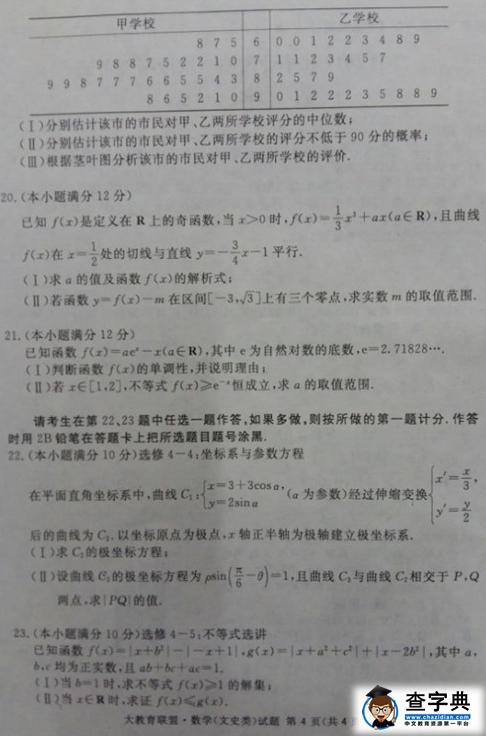 甲学校 乙学校
8 7 5 6 0 0 1 2 2 3 4 8 9
9 8 8 7 5 2 2 1 0 7 1 1 2 3 4 5 7
9 9 8 7 7 7 6 6 5 5 4 3 8 2 5 7 9
8 6 5 2 1 0 9 0 1 2 2 2 3 5 8 8 9
(Ⅰ)分别估计该市的市民对甲、乙两所学校评分的中位数;
(Ⅱ)分别估计该市的市民对甲、乙两所学校的评分不低于 90 分的概率;
(Ⅲ)根据茎叶图分析该市的市民对甲、乙两所学校的评价.
20.(本小题满分 12 分)
已知 f(x)是定义在 R 上的奇函数,当 x>0 时,f(x)=1/3x³+ax(a∈R),且曲线
f(x)在 x=1/2处的切线与直线 y=-3/4x-1 平行.
(Ⅰ)求 a 的值及函数 f(x)的解析式;
(Ⅱ)若函数 y=f(x)-m 在区间[-3,√3]上有三个零点,求实数 m 的取值范围.
21.(本小题满分 12 分)
已知函数 f(x)=aeˣ-x(a∈R),其中 e 为自然对数的底数,e=2.71828….
(Ⅰ)判断函数 f(x)的单调性,并说明理由;
(Ⅱ)若 x∈[1,2],不等式 f(x)≥e⁻ˣ恒成立,求 a 的取值范围.
请考生在第 22、23 题中任选一题作答,如果多做,则按所做的第一题计分.作答
时用 2B 铅笔在答题卡上把所选题目题号涂黑.
22.(本小题满分 10 分)选修 4-4:坐标系与参数方程
在平面直角坐标系中,曲线 C₁:{x=3+3cosα, y=2sinα (α 为参数)经过伸缩变换{x′=x/3, y′=y/2
后的曲线为 C₂.以坐标原点为极点,x 轴正半轴为极轴建立极坐标系.
(Ⅰ)求 C₂的极坐标方程;
(Ⅱ)设曲线 C₃的极坐标方程为 ρsin(π/6-θ)=1,且曲线 C₃与曲线 C₂相交于 P,Q
两点,求|PQ|的值.
23.(本小题满分 10 分)选修 4-5:不等式选讲
已知函数 f(x)=|x+b²|-|-x+1|,g(x)=|x+a²+c²|+|x-2b²|,其中 a,
b,c 均为正实数,且 ab+bc+ac=1.
(Ⅰ)当 b=1 时,求不等式 f(x)≥1 的解集;
(Ⅱ)当 x∈R 时,求证 f(x)≤g(x).
大教育联盟·数学(文史类)试题 第 4 页(共 4
查字典
www.chazidian.com
中文教育资源第一平台